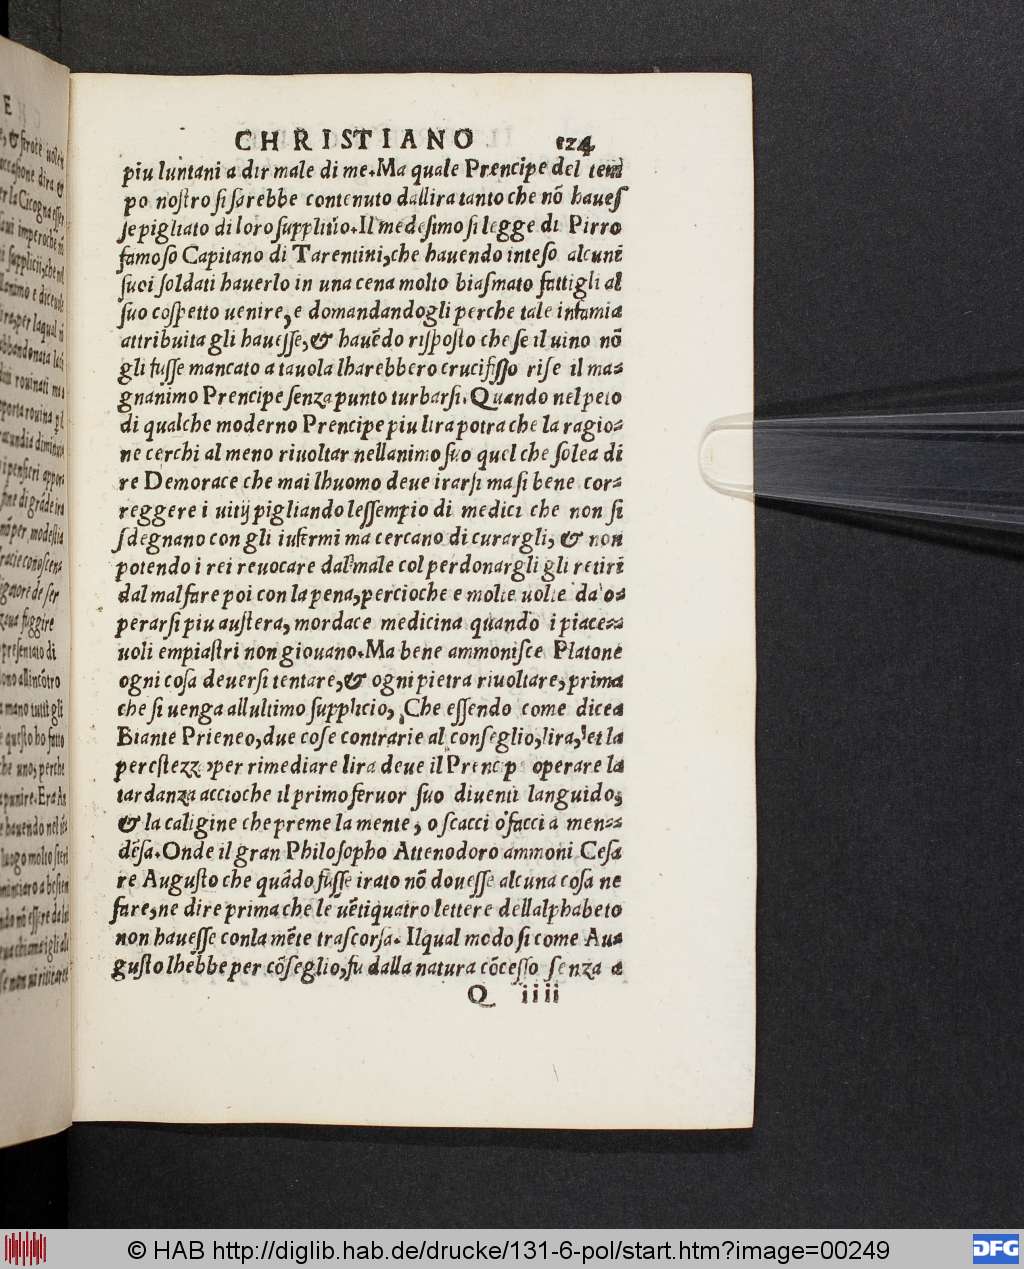 CHRISTIANO 124
piu luntani a dir male di me. Ma quale Prencipe del tem
po nostro si sarebbe contenuto dallira tanto che nõ haueſ
ſe pigliato di loro ſupplitio. Il medeſimo ſi legge di Pirro
famoſo Capitano di Tarentini, che hauendo inteſo alcuni
ſuoi ſoldati hauerlo in una cena molto biaſmato fattigli al
ſuo coſpetto uenire, e domandandogli perche tale infamia
attribuita gli haueſſe, & hauẽdo riſpoſto che ſe il uino nõ
gli fuſſe mancato a tauola lharebbero crucifiſſo riſe il ma=
gnanimo Prencipe ſenza punto turbarſi. Quando nel peto
di qualche moderno Prencipe piu lira potra che la ragio=
ne cerchi al meno riuoltar nellanimo ſuo quel che ſolea di
re Demorace che mai lhuomo deue irarſi ma ſi bene cor=
reggere i uitij pigliando leſſempio di medici che non ſi
ſdegnano con gli infermi ma cercano di curargli, & non
potendo i rei reuocare dal male col perdonargli gli retiri
dal mal fare poi con la pena, percioche e molte uolte da o=
perarſi piu auſtera, mordace medicina quando i piace=
uoli empiaſtri non giouano. Ma bene ammoniſce Platone
ogni coſa deuerſi tentare, & ogni pietra riuoltare, prima
che ſi uenga allultimo ſupplicio, Che eſſendo come dicea
Biante Prieneo, due coſe contrarie al conſeglio, lira, et la
preſtezza per rimediare lira deue il Prencipe operare la
tardanza accioche il primo feruor ſuo diuenti languido,
& la caligine che preme la mente, o ſcacci o facci a men=
dẽſa. Onde il gran Philoſopho Attenodoro ammoni Ceſa
re Auguſto che quãdo fuſſe irato nõ doueſſe alcuna coſa ne
fare, ne dire prima che le uẽtiquatro lettere dellalphabeto
non haueſſe conla mẽte traſcorſa. Ilqual modo ſi come Au=
guſto lhebbe per cõſeglio, fu dalla natura cõceſſo ſenza a
Q iiii
© HAB http://diglib.hab.de/drucke/131-6-pol/start.htm?image=00249
DFG